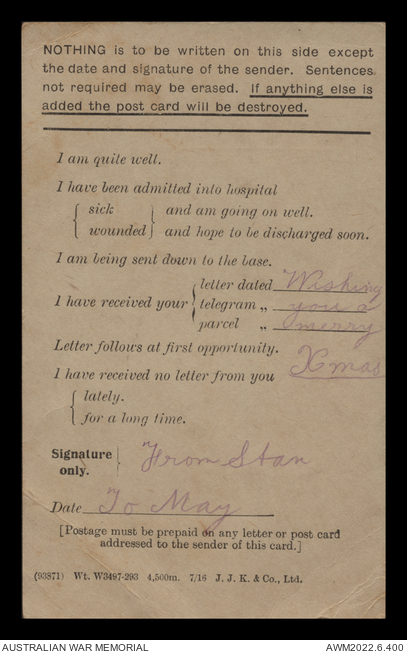 NOTHING is to be written on this side except
the date and signature of the sender. Sentences
not required may be erased. If anything else is
added the post card will be destroyed.
I am quite well.
I have been admitted into hospital
sick and am going on well.
wounded and hope to be discharged soon.
I am being sent down to the base.
I have received your
letter dated Wishing
telegram „ you a
parcel „ merry
Xmas
Letter follows at first opportunity.
I have received no letter from you
lately.
for a long time.
Signature
only.
From Stan
Date To May
[Postage must be prepaid on any letter or post card
addressed to the sender of this card.]
(93871) Wt. W3497-293 4,500m. 7/16 J. J. K. & Co., Ltd.
AUSTRALIAN WAR MEMORIAL
AWM2022.6.400